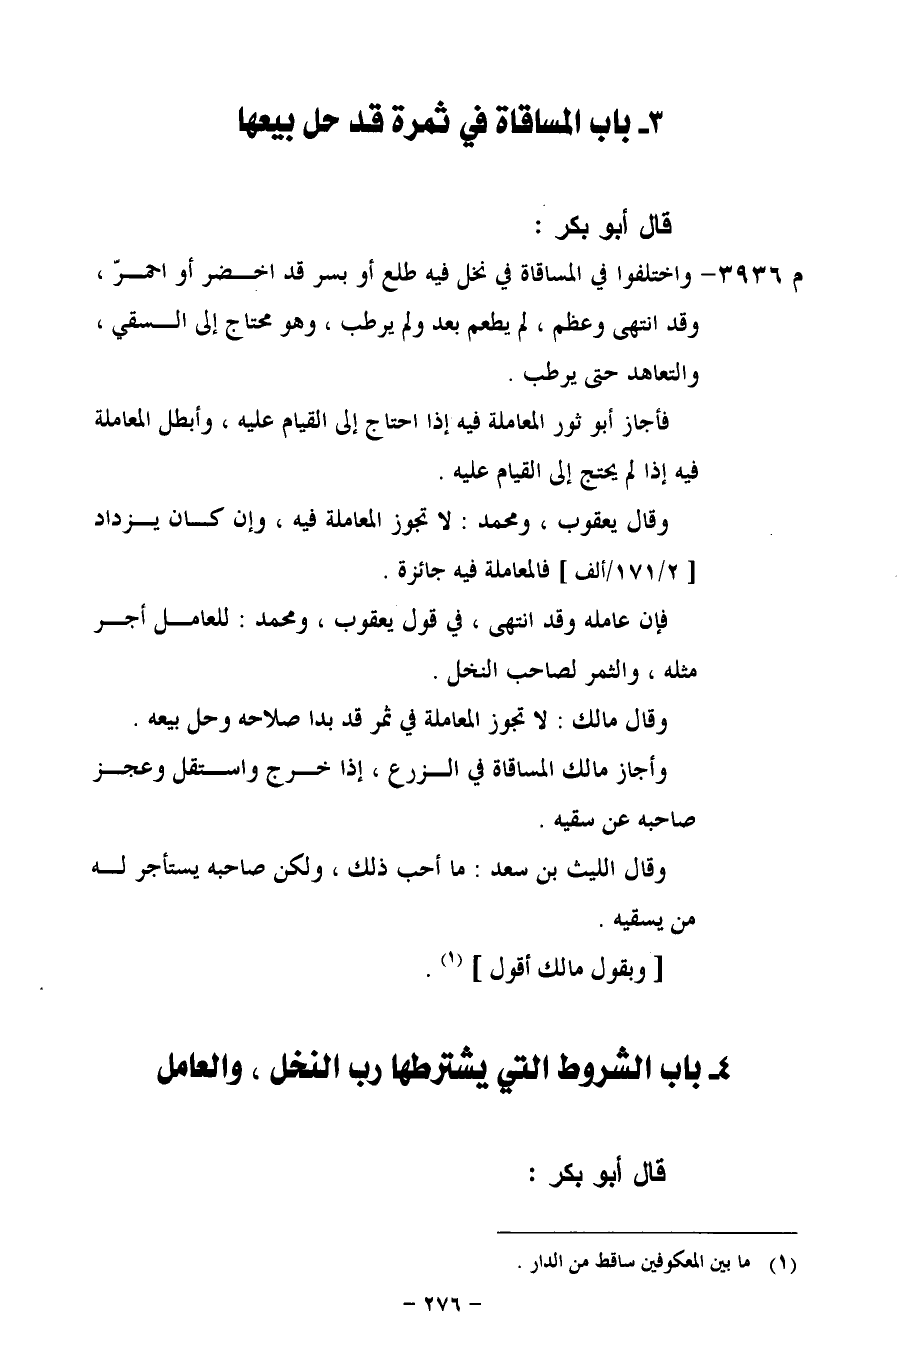 ٣ـ باب المساقاة في ثمرة قد حل بيعها
قال أبو بكر :
م ٣٩٣٦– واختلفوا في المساقاة في نخل فيه طلع أو بسر قد اخـــضر أو احمـــرّ ،
وقد انتهى وعظم ، لم يطعم بعد ولم يرطب ، وهو محتاج إلى الـــسقي ،
والتعاهد حتى يرطب .
فأجاز أبو ثور المعاملة فيه إذا احتاج إلى القيام عليه ، وأبطل المعاملة
فيه إذا لم يحتج إلى القيام عليه .
وقال يعقوب ، ومحمد : لا تجوز المعاملة فيه ، وإن كـــان يـــزداد
[ ١٧١/٢/ألف ] فالمعاملة فيه جائزة .
فإن عامله وقد انتهى ، في قول يعقوب ، ومحمد : للعامـــل أجـــر
مثله ، والثمر لصاحب النخل .
وقال مالك : لا تجوز المعاملة في ثمر قد بدا صلاحه وحل بيعه .
وأجاز مالك المساقاة في الـــزرع ، إذا خـــرج واســـتقل وعجـــز
صاحبه عن سقيه .
وقال الليث بن سعد : ما أحب ذلك ، ولكن صاحبه يستأجر لـــه
من يسقيه .
[ وبقول مالك أقول ] (١) .
٤ـ باب الشروط التي يشترطها رب النخل ، والعامل
قال أبو بكر :
(١) ما بين المعكوفين ساقط من الدار .
– ٢٧٦ –